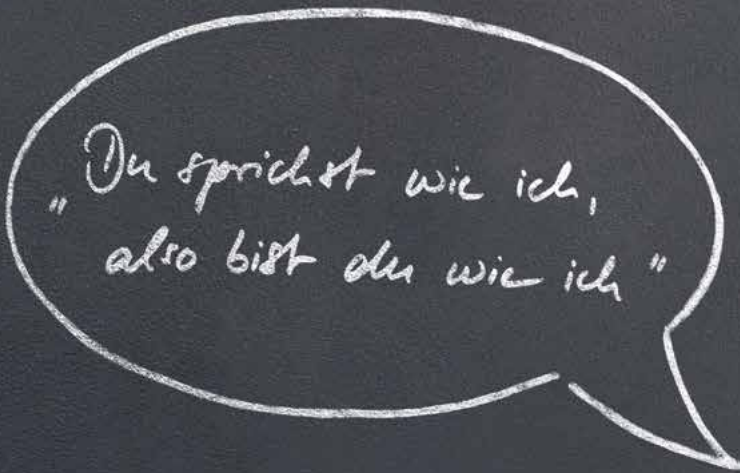 „Du sprichst wie ich,
also bist du wie ich"